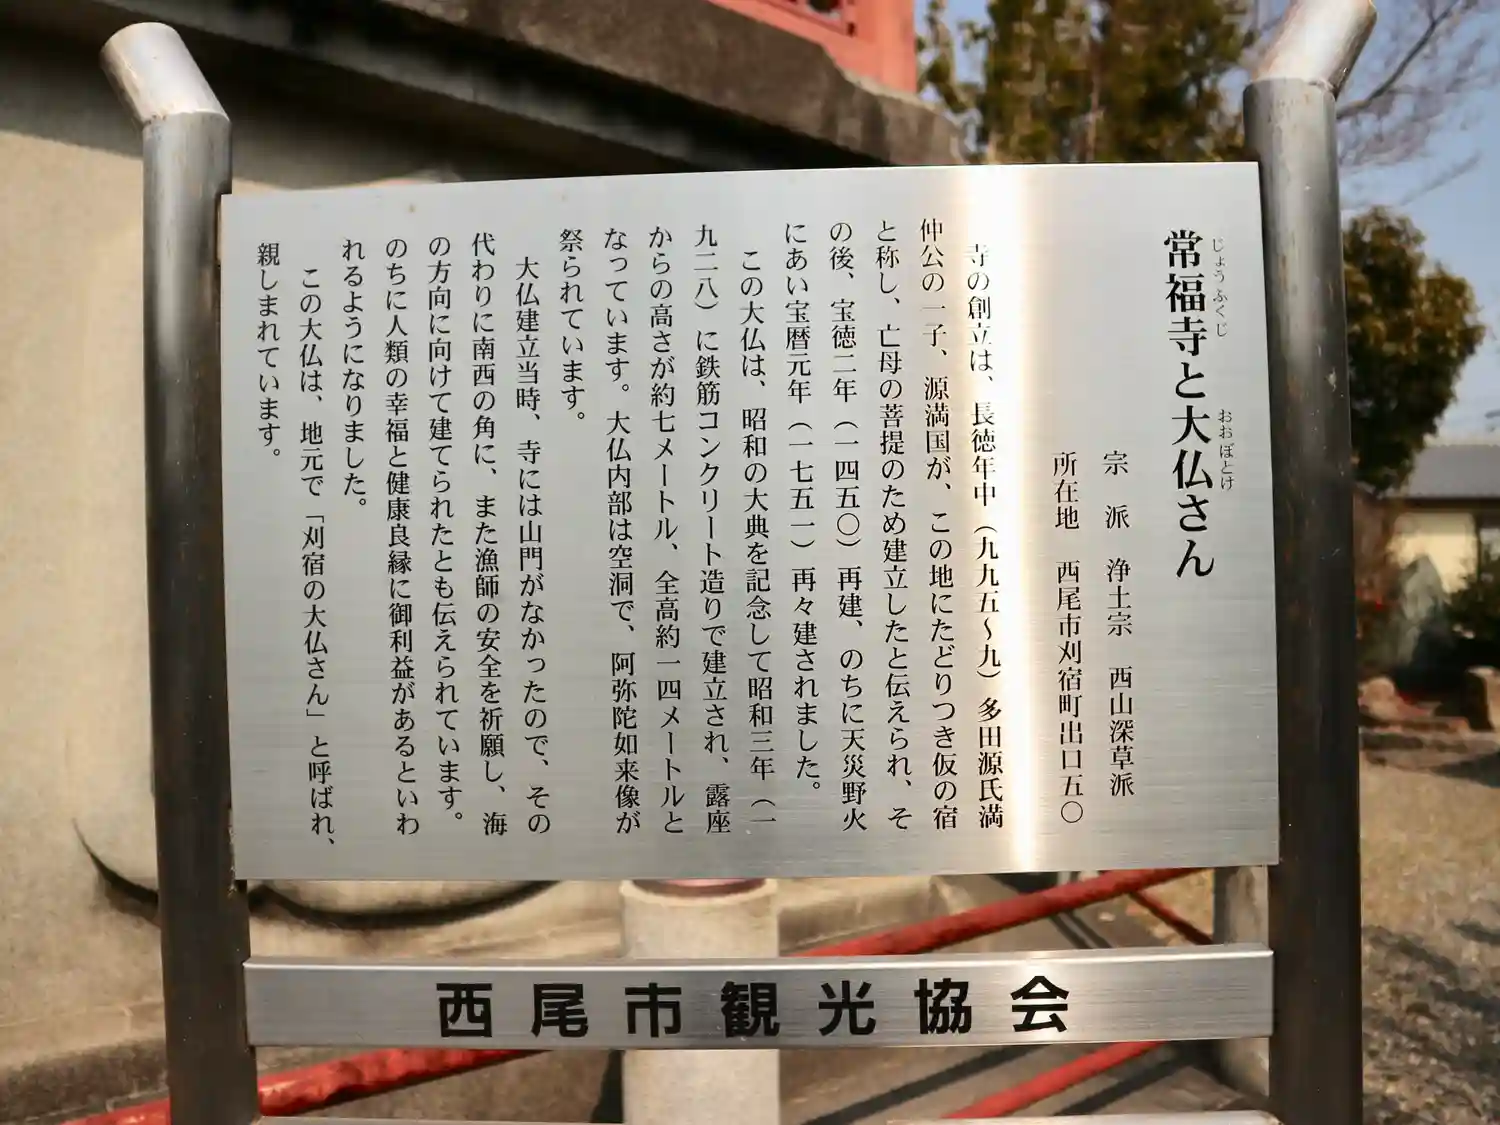 常福寺と大仏さん
じょうふくじ
おおぼとけ
宗　派　浄土宗　西山深草派
所在地　西尾市刈宿町出口五〇
寺の創立は、長徳年中（九九五〜九）多田源氏満
仲公の一子、源満国が、この地にたどりつき仮の宿
と称し、亡母の菩提のため建立したと伝えられ、そ
の後、宝徳二年（一四五〇）再建、のちに天災野火
にあい宝暦元年（一七五一）再々建されました。
この大仏は、昭和の大典を記念して昭和三年（一
九二八）に鉄筋コンクリート造りで建立され、露座
からの高さが約七メートル、全高約一四メートルと
なっています。大仏内部は空洞で、阿弥陀如来像が
祭られています。
大仏建立当時、寺には山門がなかったので、その
代わりに南西の角に、また漁師の安全を祈願し、海
の方向に向けて建てられたとも伝えられています。
のちに人類の幸福と健康良縁に御利益があるといわ
れるようになりました。
この大仏は、地元で「刈宿の大仏さん」と呼ばれ、
親しまれています。
西尾市観光協会